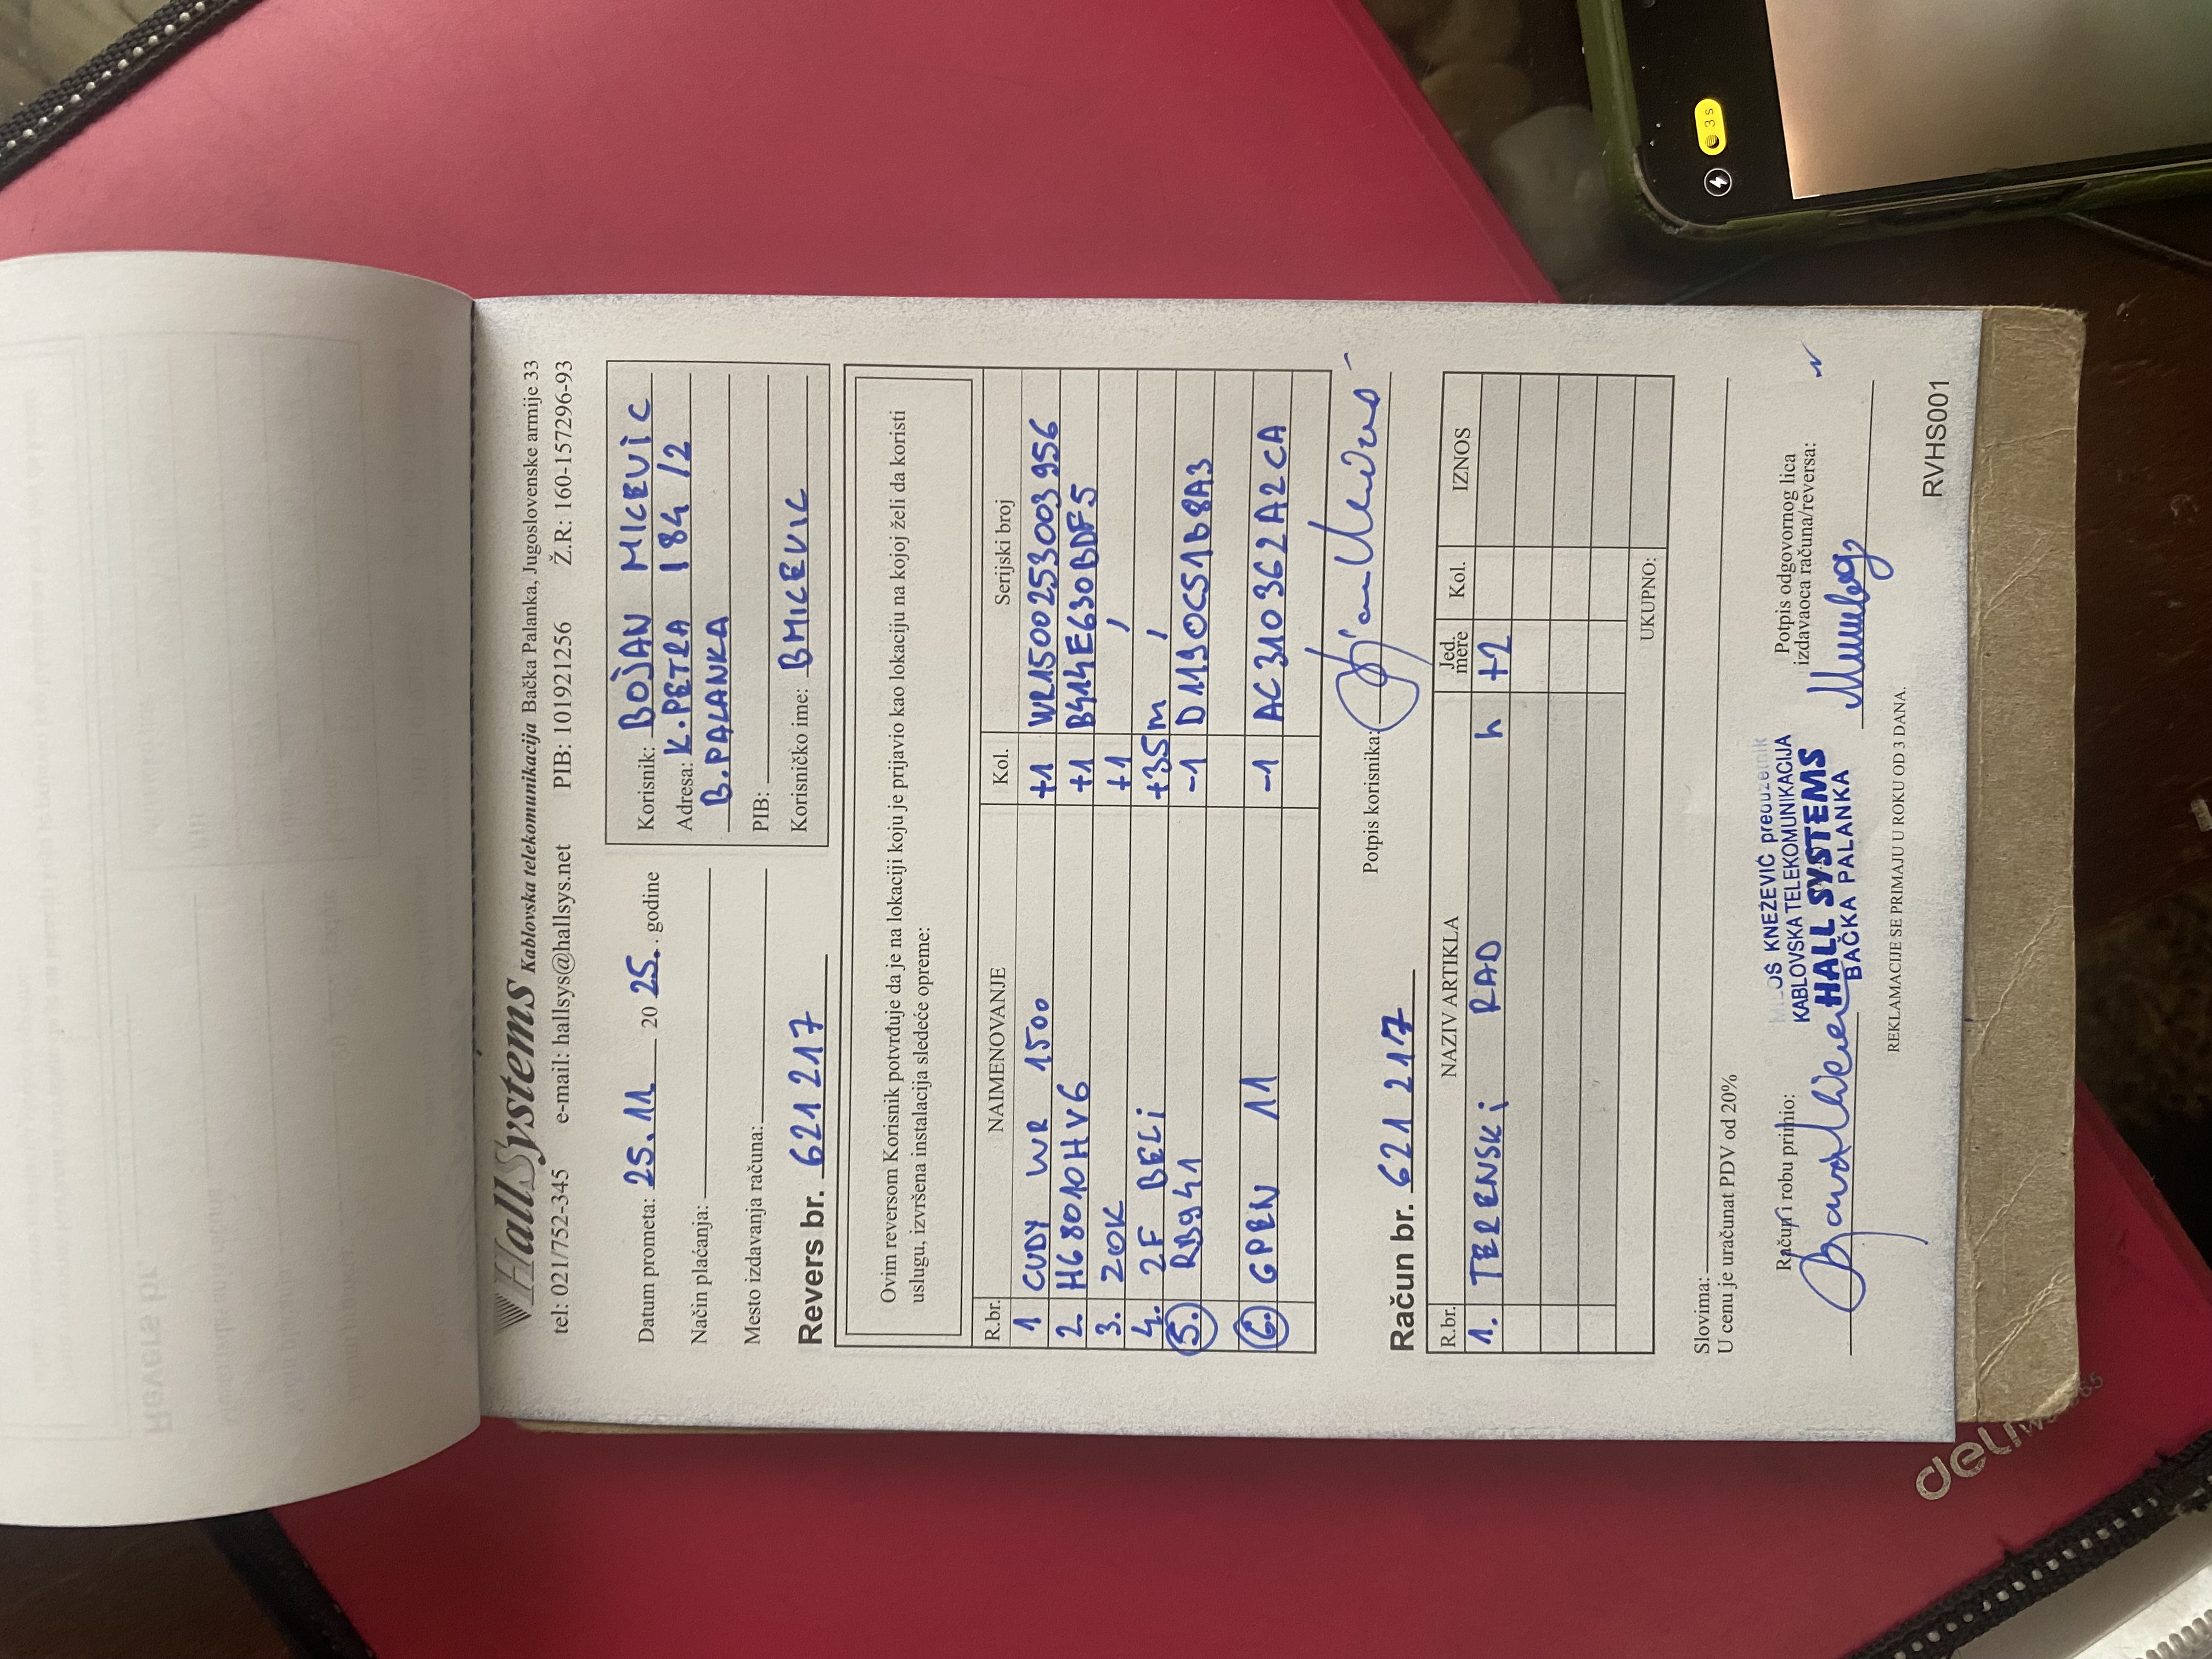 HallSystems Kablovska telekomunikacija Bačka Palanka, Jugoslovenske armije 33
tel: 021/752-345 e-mail: hallsys@hallsys.net PIB: 101921256 Ž.R: 160-157296-93
Datum prometa: 25.11 2025. godine
Način plaćanja:
Mesto izdavanja računa:
Revers br. 621217
Korisnik: BOJAN MICEVIC
Adresa: K.PETRA 184/2
B.PALANKA
PIB:
Korisničko ime: BMICEVIC
Ovim reversom Korisnik potvrđuje da je na lokaciji koju je prijavio kao lokaciju na kojoj želi da koristi
uslugu, izvršena instalacija sledeće opreme:
R.br. NAIMENOVANJE Kol. Serijski broj
1 CUDY WR 1500 +1 WR1500253003956
2. HG8010HV6 +1 B414E630BDF5
3. 20K +1 /
4. 2F BELI +35m /
5. RB941 -1 D1130C51B8A3
6. GPEN 11 -1 AC310362A2CA
Potpis korisnika:
Račun br. 621217
R.br. NAZIV ARTIKLA Jed. mere Kol. IZNOS
1. TERENSKI RAD h +2
UKUPNO:
Slovima:
U cenu je uračunat PDV od 20%
Račun i robu primio:
KNEŽEVIĆ preduzetnik
KABLOVSKA TELEKOMUNIKACIJA
HALL SYSTEMS
BAČKA PALANKA
Potpis odgovornog lica
izdavaoca računa/reversa:
REKLAMACIJE SE PRIMAJU U ROKU OD 3 DANA.
RVHS001
deli
3 s
Revers br.